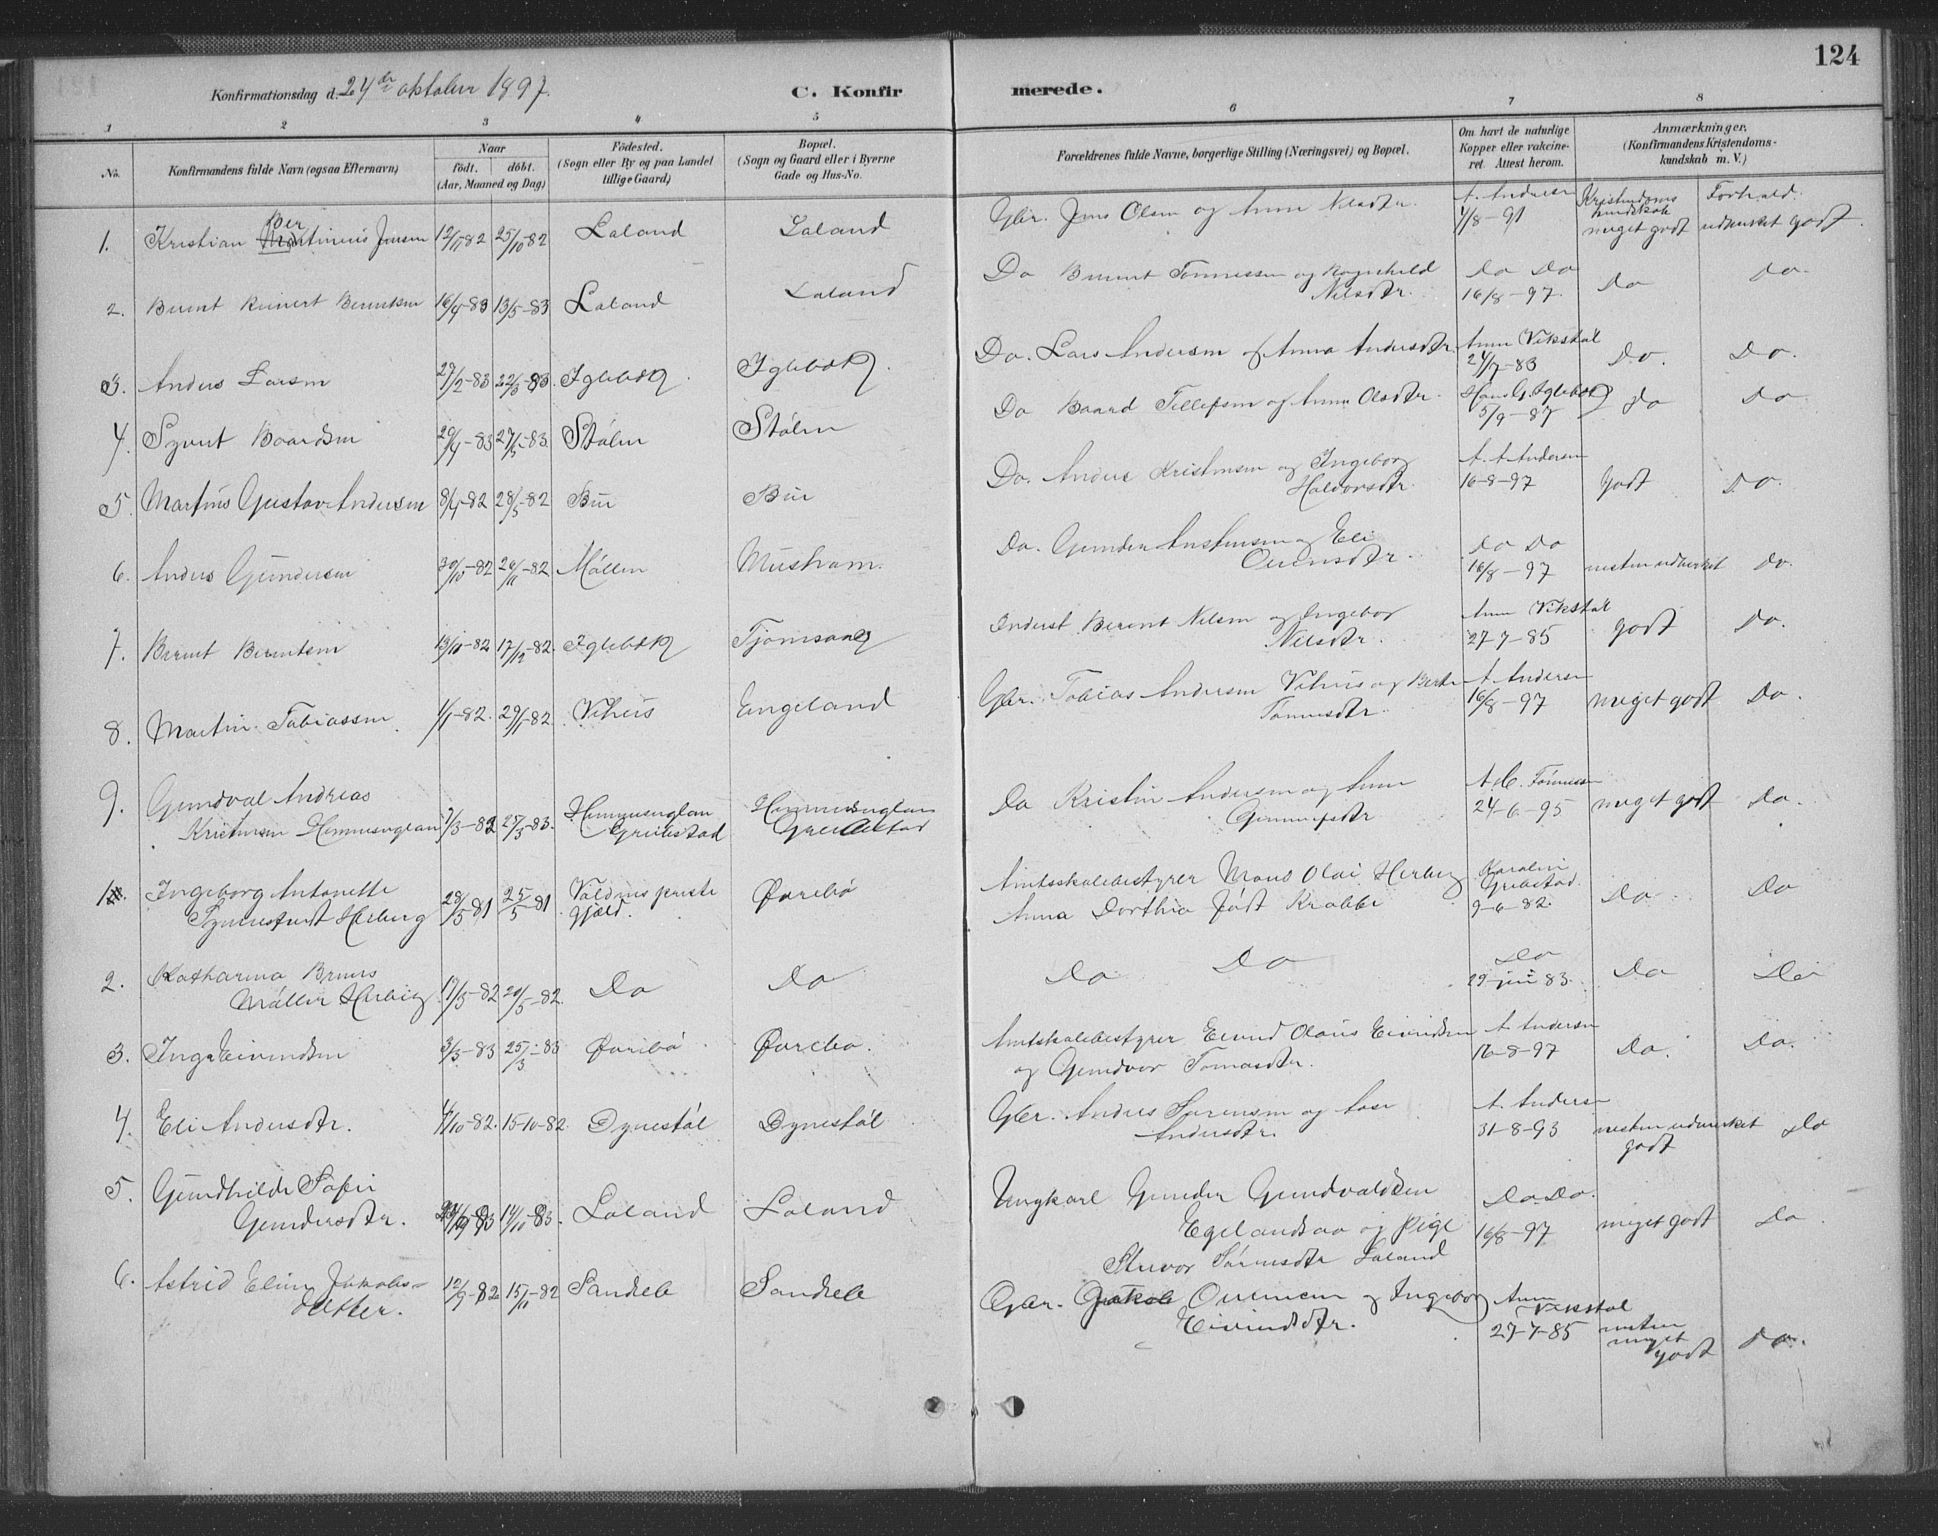 124
Konfirmationsdag d. 24de oktober 1897.
C. Konfirmerede.
1 2 3 4 5 6 7 8
No.
Konfirmandens fulde Navn (ogsaa Efternavn)
Naar
födt. döbt.
(Aar, Maaned og Dag)
Födested.
(Sogn eller By og paa Landet
tillige Gaard)
Bopæl.
(Sogn og Gaard eller i Byerne
Gade og Hus-No.
Forældrenes fulde Navne, borgerlige Stilling (Næringsvei) og Bopæl.
Om havt de naturlige
Kopper eller vakcineret.
Attest herom.
Anmærkninger.
(Konfirmandens Kristendomskundskab
m. V.)
1. Kristian Bertinius Jensen 25/10-82 Laland Laland Gbr. Jens Olsen og Anne Nilsdtr. A. Andersen 4/8-91 Kristendoms kundskab meget godt Forhold. udmerket godt.
2. Berent Reinert Berentsen 16/4-83 13/5-83 Laland Laland Do Berent Tønnessen og Ragnhild Nilsdtr. Do Do 16/8-97. Do Do.
3. Anders Larsen 27/2-83 22/3-83. Iglebæk. Iglebæk. Do. Lars Andersen og Anna Andersdtr. Anne Vikstøl 24/7-83 Do. Do.
4. Syvert Baardsen 29/4-83 27/5-83. Stølen Stølen Do Baard Tellefsen og Anne Olsdtr. Hans G. Iglebæk 5/9-87 Do Do.
5. Martinus Gustav Andersen 8/4-82 28/5-82 Bue Bue Do. Anders Kristensen og Ingeborg Halvorsdtr. A. A. Andersen 16-8-97 godt Do.
6. Anders Gundersen 30/10-82 26/11-82 Møllen Mushom. Do. Gunder Eli Ouensdtr. Do Do 16/8-97 nesten udmerket Do.
7. Berent Berentsen 17/12-82. Iglebæk Tjomsaas Inderst Berent Nilsen og Ingebor Nilsdtr. Anne Vikstøl 27-7-85 godt Do.
8. Martin Tobiassen 1/1-82. 29/1-82 Vehus Engeland Gbr. Tobias Andersen Vehus og Berte Tønnesdtr. A. Andersen 16/8-97 meget godt Do.
9. Gundval Andreas Kristensen 7/3-83 27/3-83. Greibestad Greibestad Do Kristen Andersen og Anne A. C. Tønnessen 24-6-95 meget godt Do.
1. Ingeborg Antonette Herberg 28/5-81 25/5-81 præste gjæld. Øvrebø Amtsskolebestyrer Mons Olai Herberg Anna Dorthea Jøst Krabbe Karoline Greibestad. 9-6-82. Do Do
2. Katharina Bruus Møller Herberg 17/3-82 29/5-82. Do Do Do Do Do 29-juni 83. Do Do
3. Inga Eivindsen 3/3-83 25/3-83 Øvrebø Øvrebø. Amtskolebestyrer Eivind Olaus Eivindsen og Gundvor Tomasdtr. A. Andersen 16-8-97 Do. Do.
4. Eli Andersdtr. 4/10-82. 15-10-82. Dynestøl Dynestøl Gbr. Anders Sørensen og Aase Andersdtr. A. Andersen 31-8-93 nesten udmerket godt Do
5. Gundhilde Sofie Gundersdtr. 14/10-83. Laland Laland Ungkarl Gunder Gundvaldsen Egelandsaa og Pige Sørensdtr Laland Do Do. 16/8-97 meget godt Do.
6. Astrid Eline Jakobsdatter. 12/9-82 15/11-82 Sandrele Sandrele Gbr. Jakob og Ingebor Eivindsdtr. Anne Vikstøl 27-7-85 nesten meget godt Do.